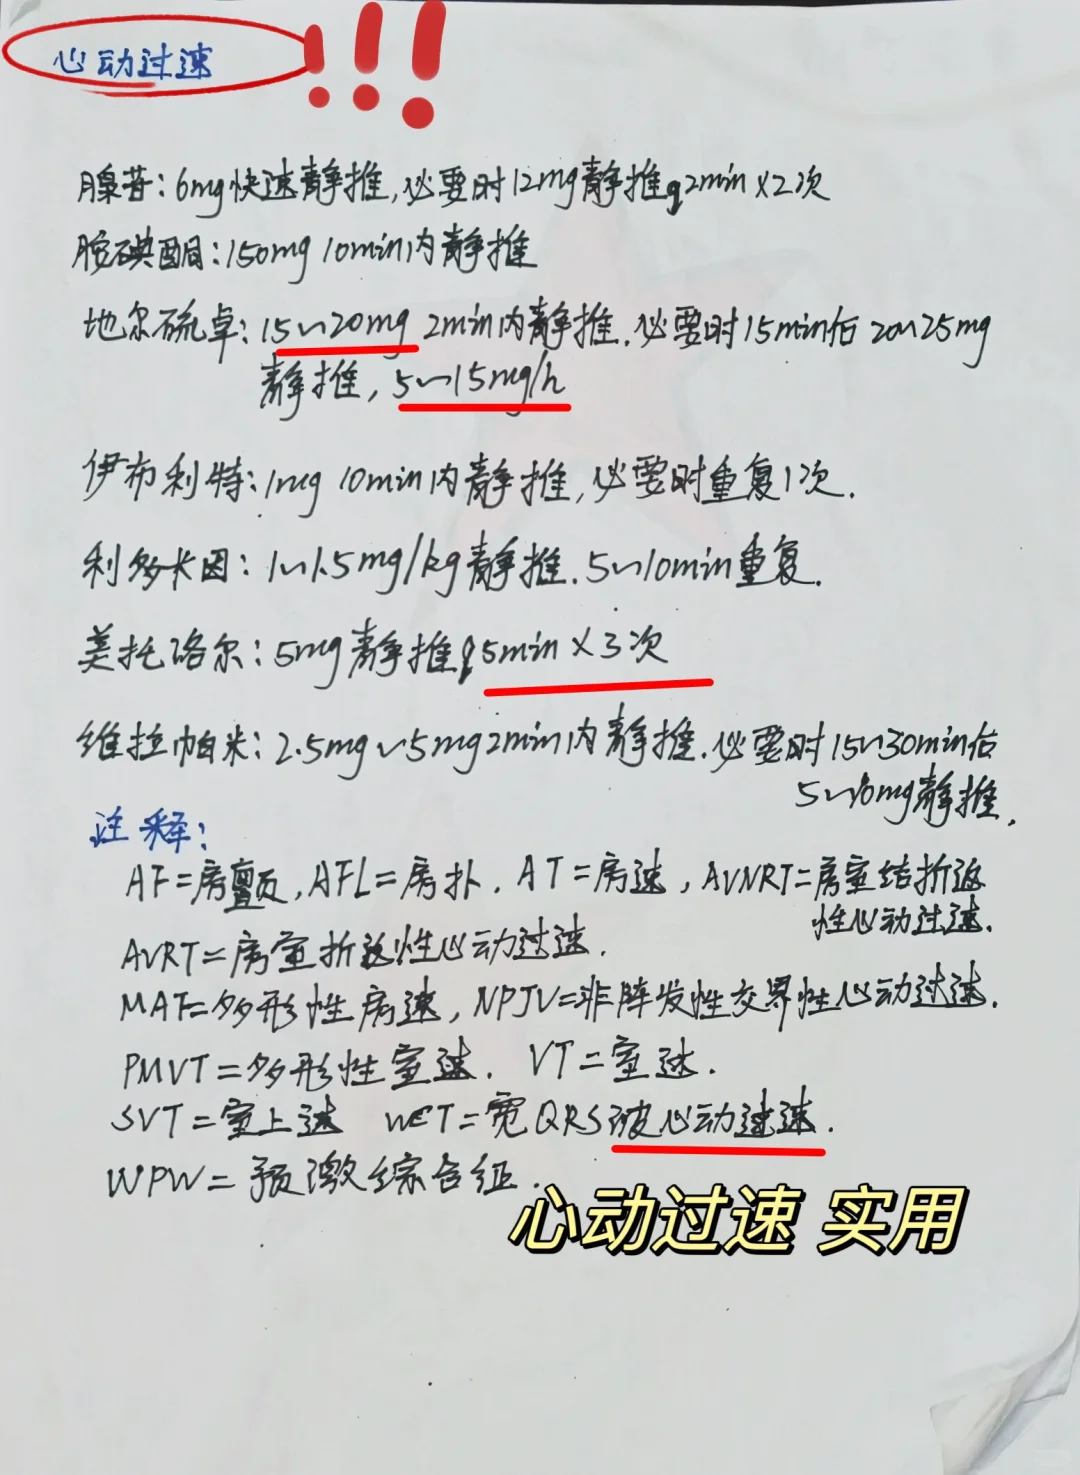 心动过速!!!
腺苷:6mg快速静推,必要时12mg静推q2min×2次
胺碘酮:150mg 10min内静推
地尔硫卓:15~20mg 2min内静推.必要时15min后20~25mg
静推,5~15mg/h
伊布利特:1mg 10min内静推,必要时重复1次.
利多卡因:1~1.5mg/kg静推.5~10min重复.
美托洛尔:5mg静推q5min×3次
维拉帕米:2.5mg~5mg2min内静推.必要时15~30min后
5~10mg静推.
注释:
AF=房颤,AFL=房扑.AT=房速,AVNRT=房室结折返
性心动过速.
AVRT=房室折返性心动过速.
MAT=多形性房速,NPJV=非阵发性交界性心动过速.
PMVT=多形性室速. VT=室速.
SVT=室上速 WCT=宽QRS波心动过速.
WPW=预激综合征.
心动过速 实用